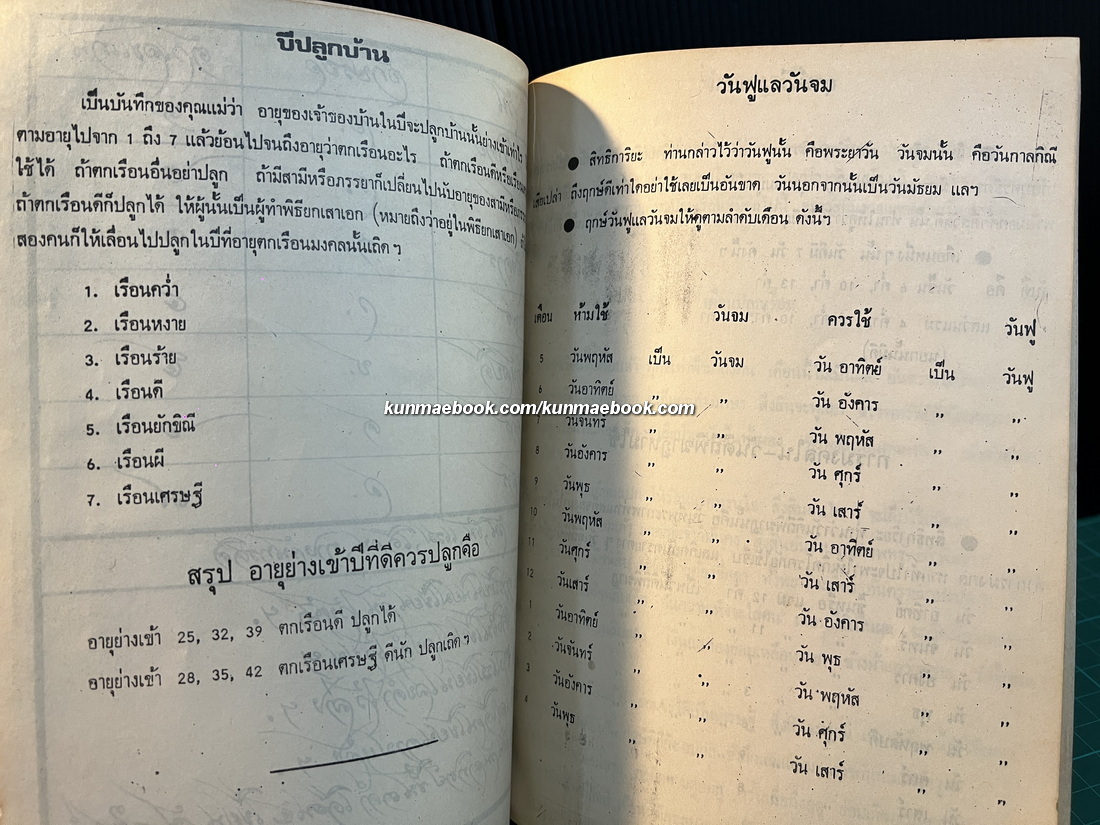 ปีปลูกบ้าน
เป็นบันทึกของคุณแม่ว่า อายุของเจ้าของบ้านในปีจะปลูกบ้านนั้นย่างเข้าเท่าไร
ตามอายุไปจาก 1 ถึง 7 แล้วย้อนไปจนถึงอายุว่าตกเรือนอะไร ถ้าตกเรือนดีหรือ
ใช้ได้ ถ้าตกเรือนอื่นอย่าปลูก ถ้ามีสามีหรือภรรยาก็เปลี่ยนไปนับอายุของสามีหรือ
ถ้าตกเรือนดีก็ปลูกได้ ให้ผู้นั้นเป็นผู้ทำพิธียกเสาเอก (หมายถึงว่าอยู่ในพิธียกเสาเอก)
สองคนก็ให้เลื่อนไปปลูกในปีที่อายุตกเรือนมงคลนั้นเถิดฯ
1. เรือนคว่ำ
2. เรือนหงาย
3. เรือนร้าย
4. เรือนดี
5. เรือนยักขิณี
6. เรือนผี
7. เรือนเศรษฐี
สรุป อายุย่างเข้าปีที่ดีควรปลูกคือ
อายุย่างเข้า 25, 32, 39 ตกเรือนดี ปลูกได้
อายุย่างเข้า 28, 35, 42 ตกเรือนเศรษฐี ดีนัก ปลูกเถิดฯ
วันฟูแลวันจม
● สิทธิการิยะ ท่านกล่าวไว้ว่าวันฟูนั้น คือพระยาวัน วันจมนั้น คือวันกาลกิณี
ถึงฤกษ์ดีเท่าใดอย่าใช้เลยเป็นอันขาด วันนอกจากนั้นเป็นวันมัธยม แลฯ
● ฤกษ์วันฟูแลวันจมให้ดูตามลำดับเดือน ดังนี้ฯ
เดือน ห้ามใช้ วันจม ควรใช้ วันฟู
5 วันพฤหัส เป็น วันจม วัน อาทิตย์ เป็น วันฟู
6 วันอาทิตย์ ,, ,, วัน อังคาร ,, ,,
7 วันจันทร์ ,, ,, วัน พฤหัส ,, ,,
8 วันอังคาร ,, ,, วัน ศุกร์ ,, ,,
9 วันพุธ ,, ,, วัน เสาร์ ,, ,,
10 วันพฤหัส ,, ,, วัน อาทิตย์ ,, ,,
11 วันศุกร์ ,, ,, วัน เสาร์ ,, ,,
12 วันเสาร์ ,, ,, วัน อังคาร ,, ,,
1 วันอาทิตย์ ,, ,, วัน พุธ ,, ,,
2 วันจันทร์ ,, ,, วัน พฤหัส ,, ,,
3 วันอังคาร ,, ,, วัน ศุกร์ ,, ,,
4 วันพุธ ,, ,, วัน เสาร์ ,, ,,
kunmaebook.com/kunmaebook.com